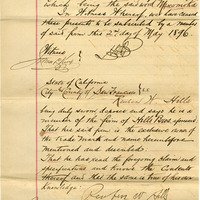 being the said
In Witness Whereof, we have caused
these presents to be subscribed by a member
of said firm this 2nd day of May 1896.
Witness
State of California
City County of San Francisco
Reuben W. Hills
being duly sworn deposes and says that he is a
member of the firm of Hills Bros.
That his said firm is the exclusive owner of
the Trade Mark and name hereinbefore
mentioned and described
That he has read the foregoing claim and
specification and knows the Contents
thereof and that the same is true of his own
knowledge;
Reuben W Hills